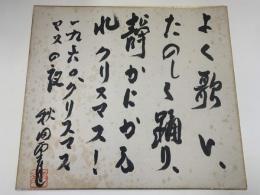 よく歌い、
たのしく踊り、
静かにかえ
れクリスマス!
一九六〇、クリスマス
マスの夜
秋田雨雀